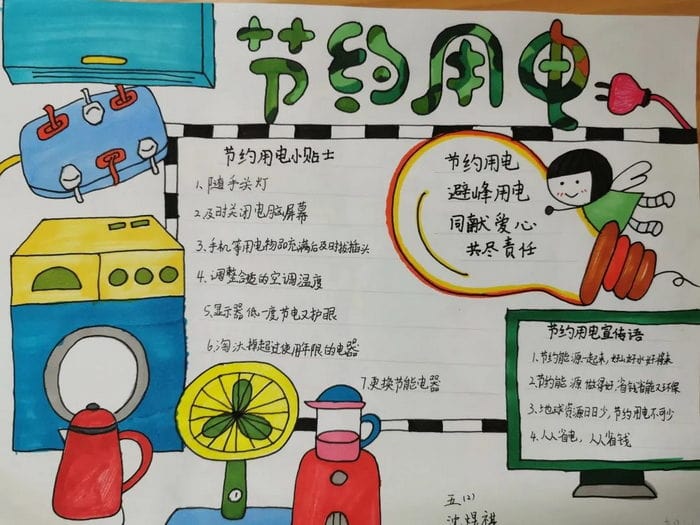 节约用电
节约用电小贴士
1、随手关灯
2、及时关闭电脑屏幕
3、手机等用电物品充满后及时拔插头
4、调整合适的空调温度
5、显示器低一度节电又护眼
6、淘汰掉超过使用年限的电器
7、更换节能电器
节约用电
避峰用电
同献爱心
共尽责任
节约用电宣传语
1、节约能源一起来，好山好水好模来
2、节约能源做得好，省钱省能又环保
3、地球资源日日少，节约用电不可少
4、人人省电，人人省钱
五（2）
沈煜祺